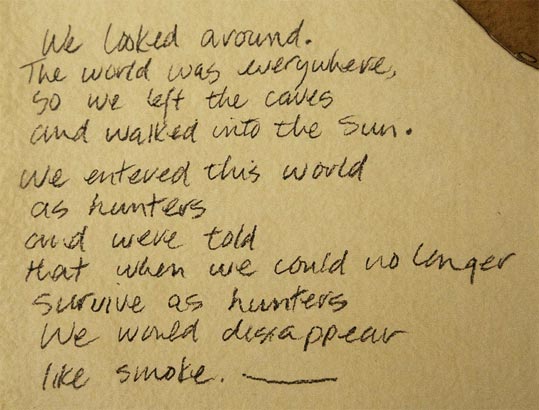 We looked around.
The world was everywhere,
so we left the caves
and walked into the Sun.
We entered this world
as hunters
and were told
that when we could no longer
survive as hunters
We would disappear
like smoke. ———